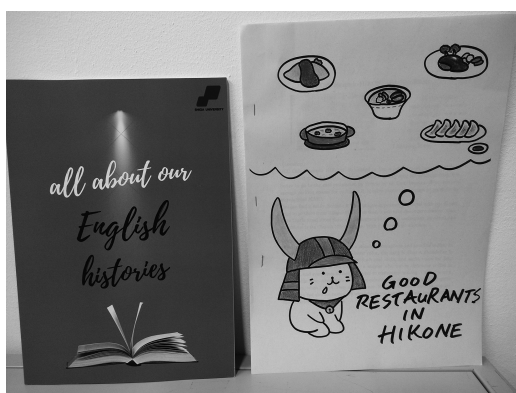 all about our
English
histories
GOOD
RESTAURANTS
IN
HIKONE